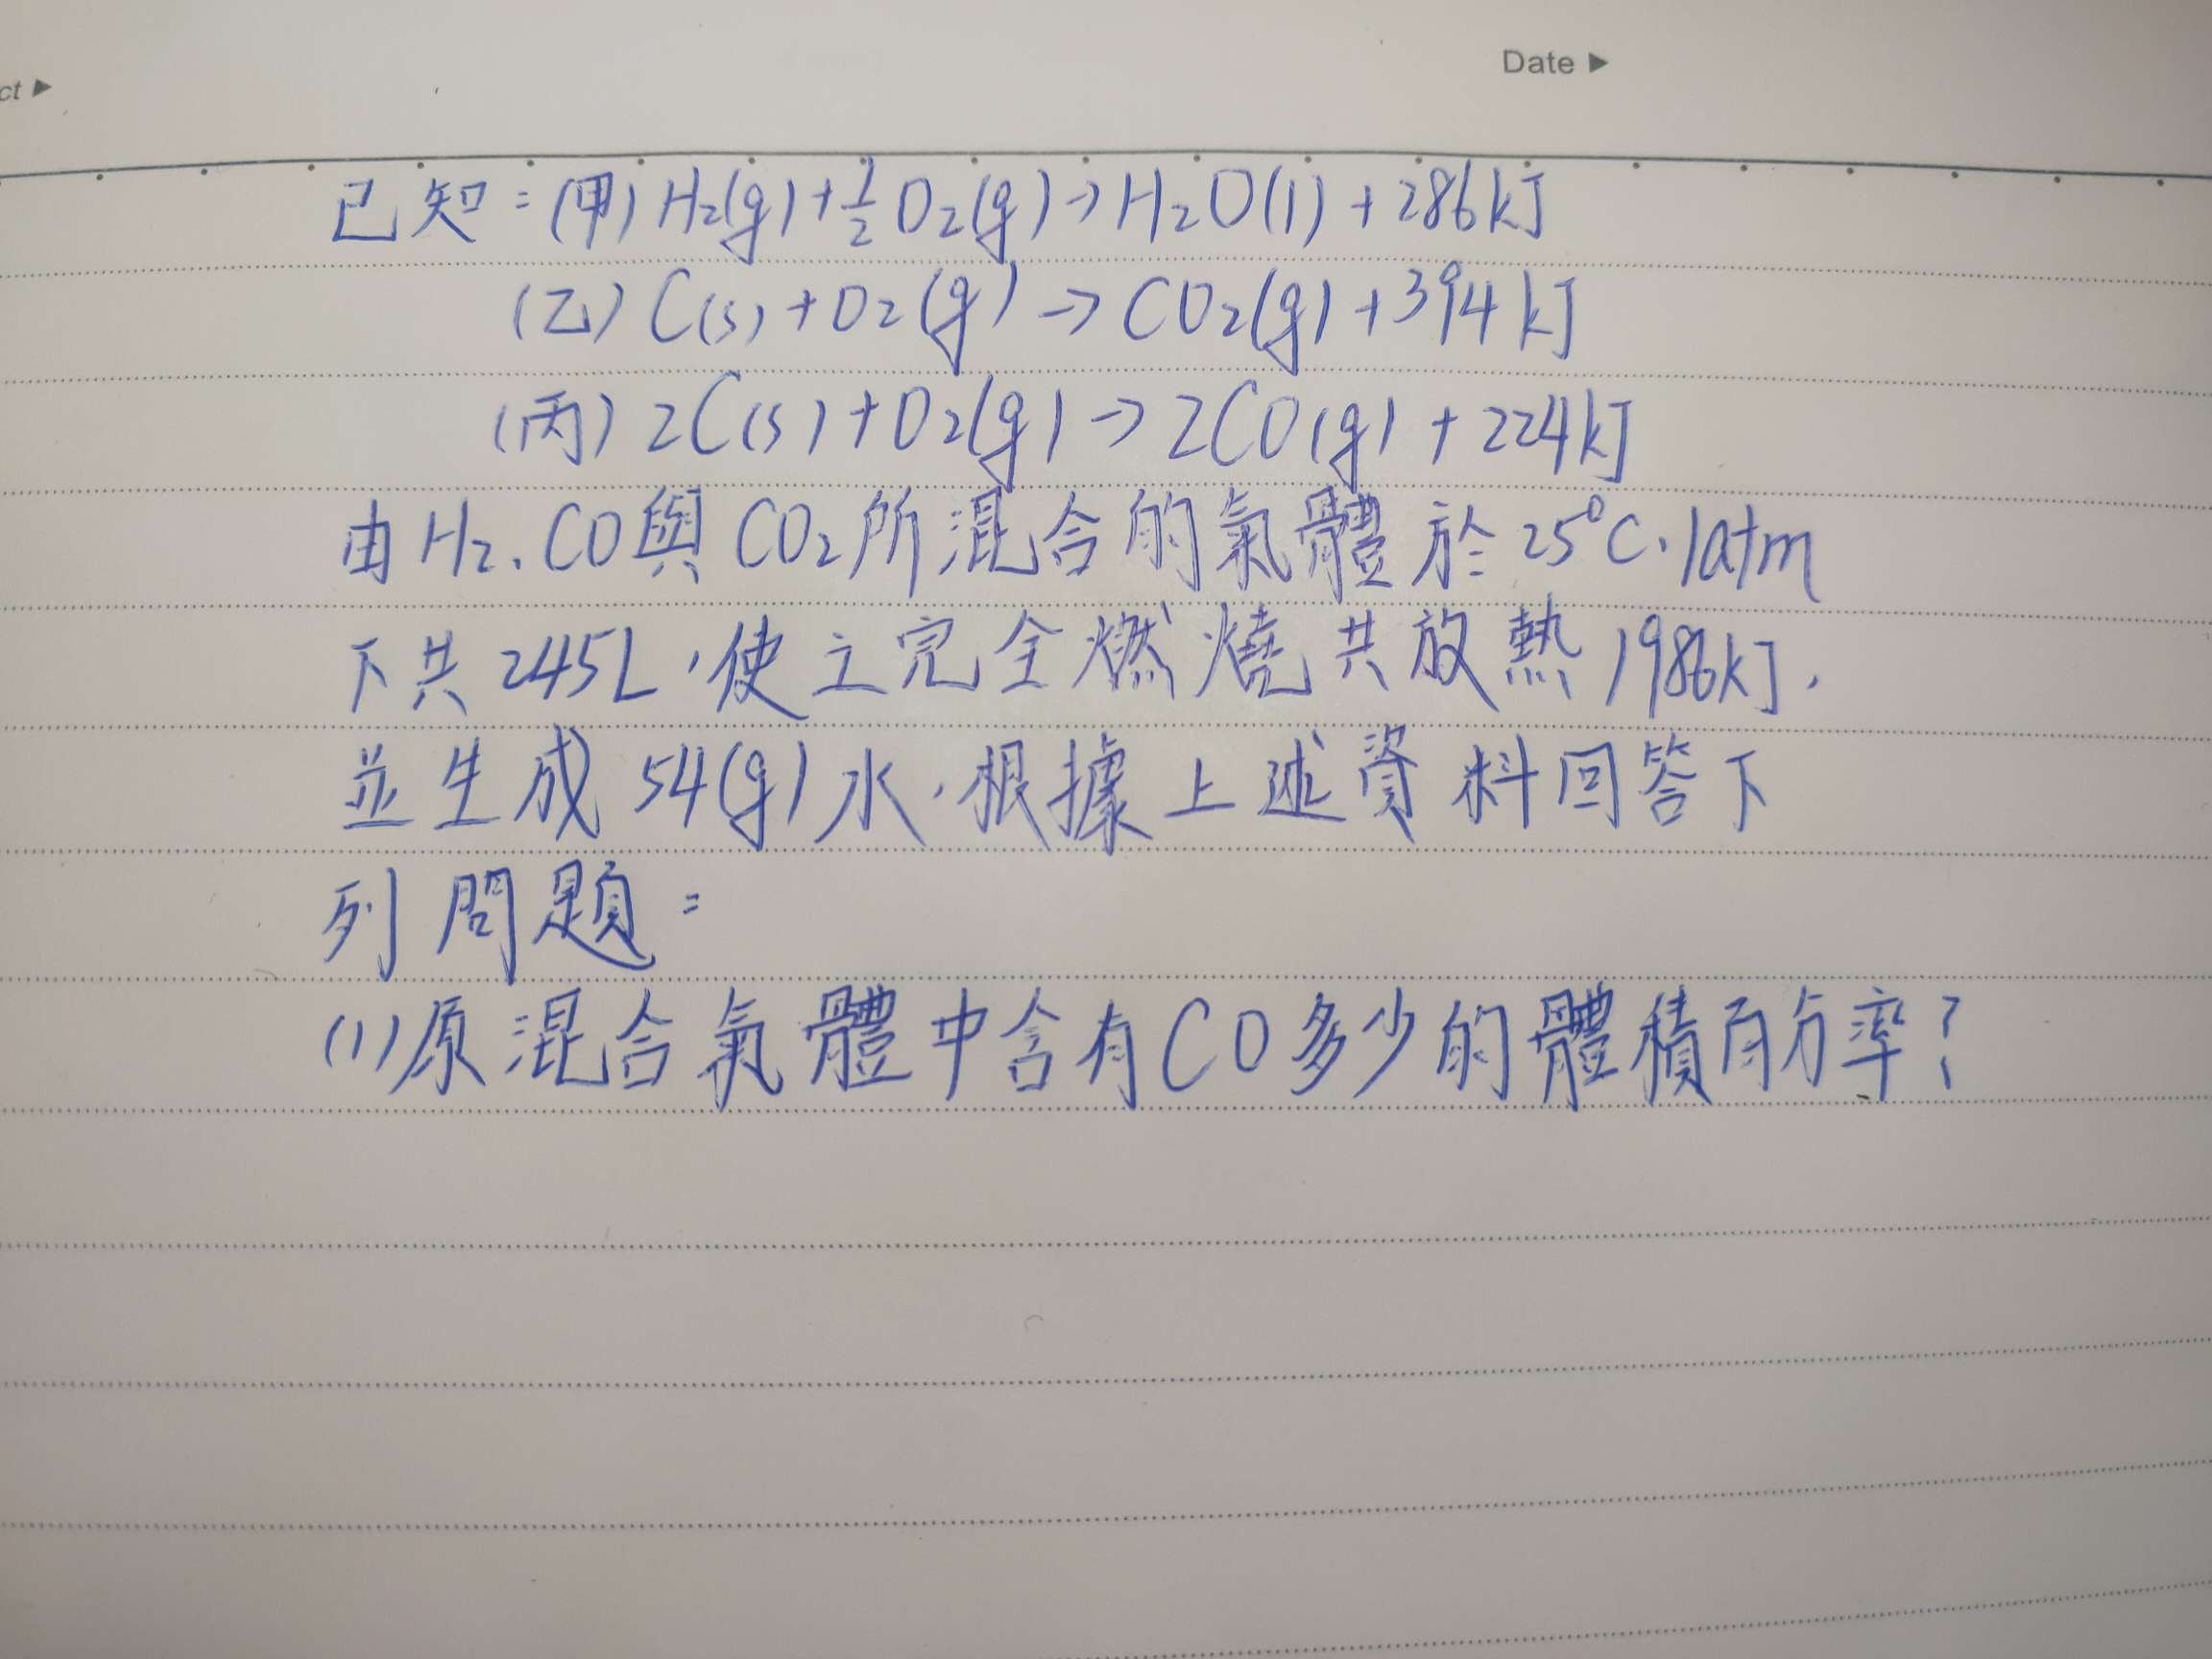 ct ▶
Date ▶
已知：(甲) H₂(g) + ½ O₂(g) → H₂O(l) + 286kJ
(乙) C(s) + O₂(g) → CO₂(g) + 394 kJ
(丙) 2C(s) + O₂(g) → 2CO(g) + 224kJ
由 H₂、CO與 CO₂所混合的氣體於 25°C、1atm
下共 245L，使之完全燃燒共放熱 1986kJ，
並生成 54(g) 水，根據上述資料回答下
列問題：
(1)原混合氣體中含有CO多少的體積百分率？